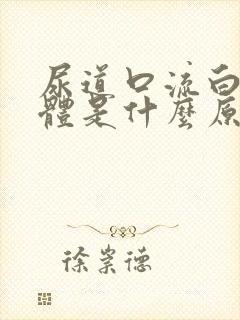 尿道口流白
體是什麼原
徐崇德